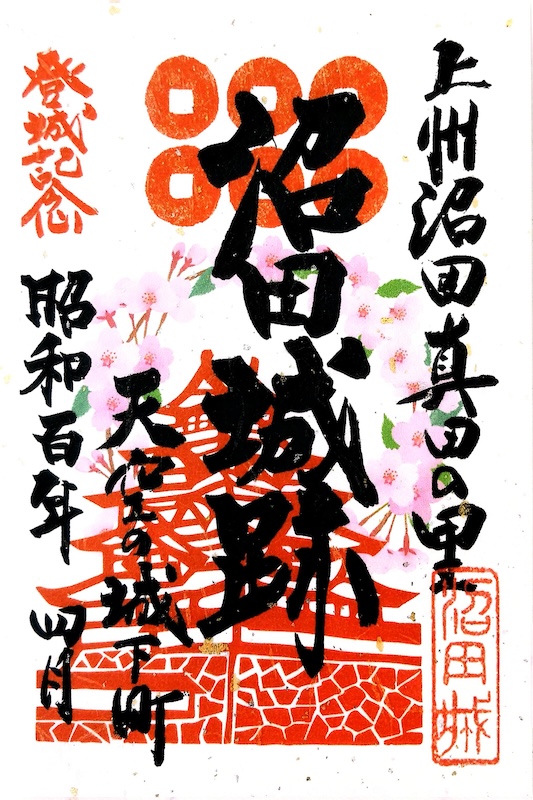 上州沼田 真田の里
沼田城
沼田城跡
天空の城下町
登城記念
昭和百年 四月